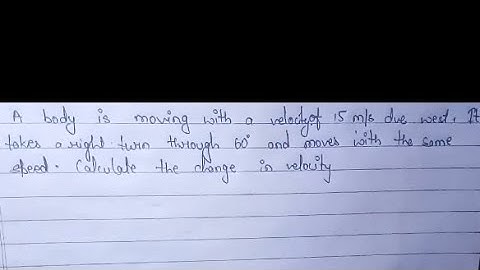 A body is moving with a velocity of 15 m/s due west. It
takes a right turn through 60° and moves with the same
speed. Calculate the change in velocity